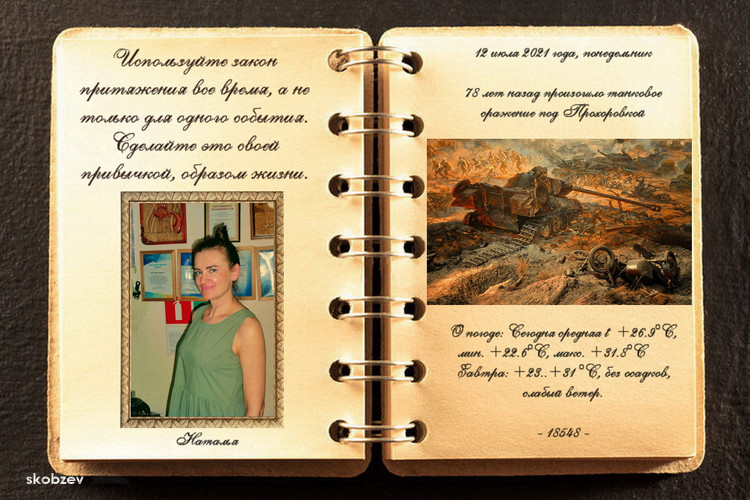 Используйте закон
притяжения все время, а не
только для одного события.
Сделайте это своей
привычкой, образом жизни.
Наталья
12 июля 2021 года, понедельник
78 лет назад произошло танковое
сражение под Прохоровкой
О погоде: Сегодня средняя t +26.9°C,
мин. +22.6°C, макс. +31.8°C
Завтра: +23..+31°C, без осадков,
слабый ветер.
- 18548 -
skobzev